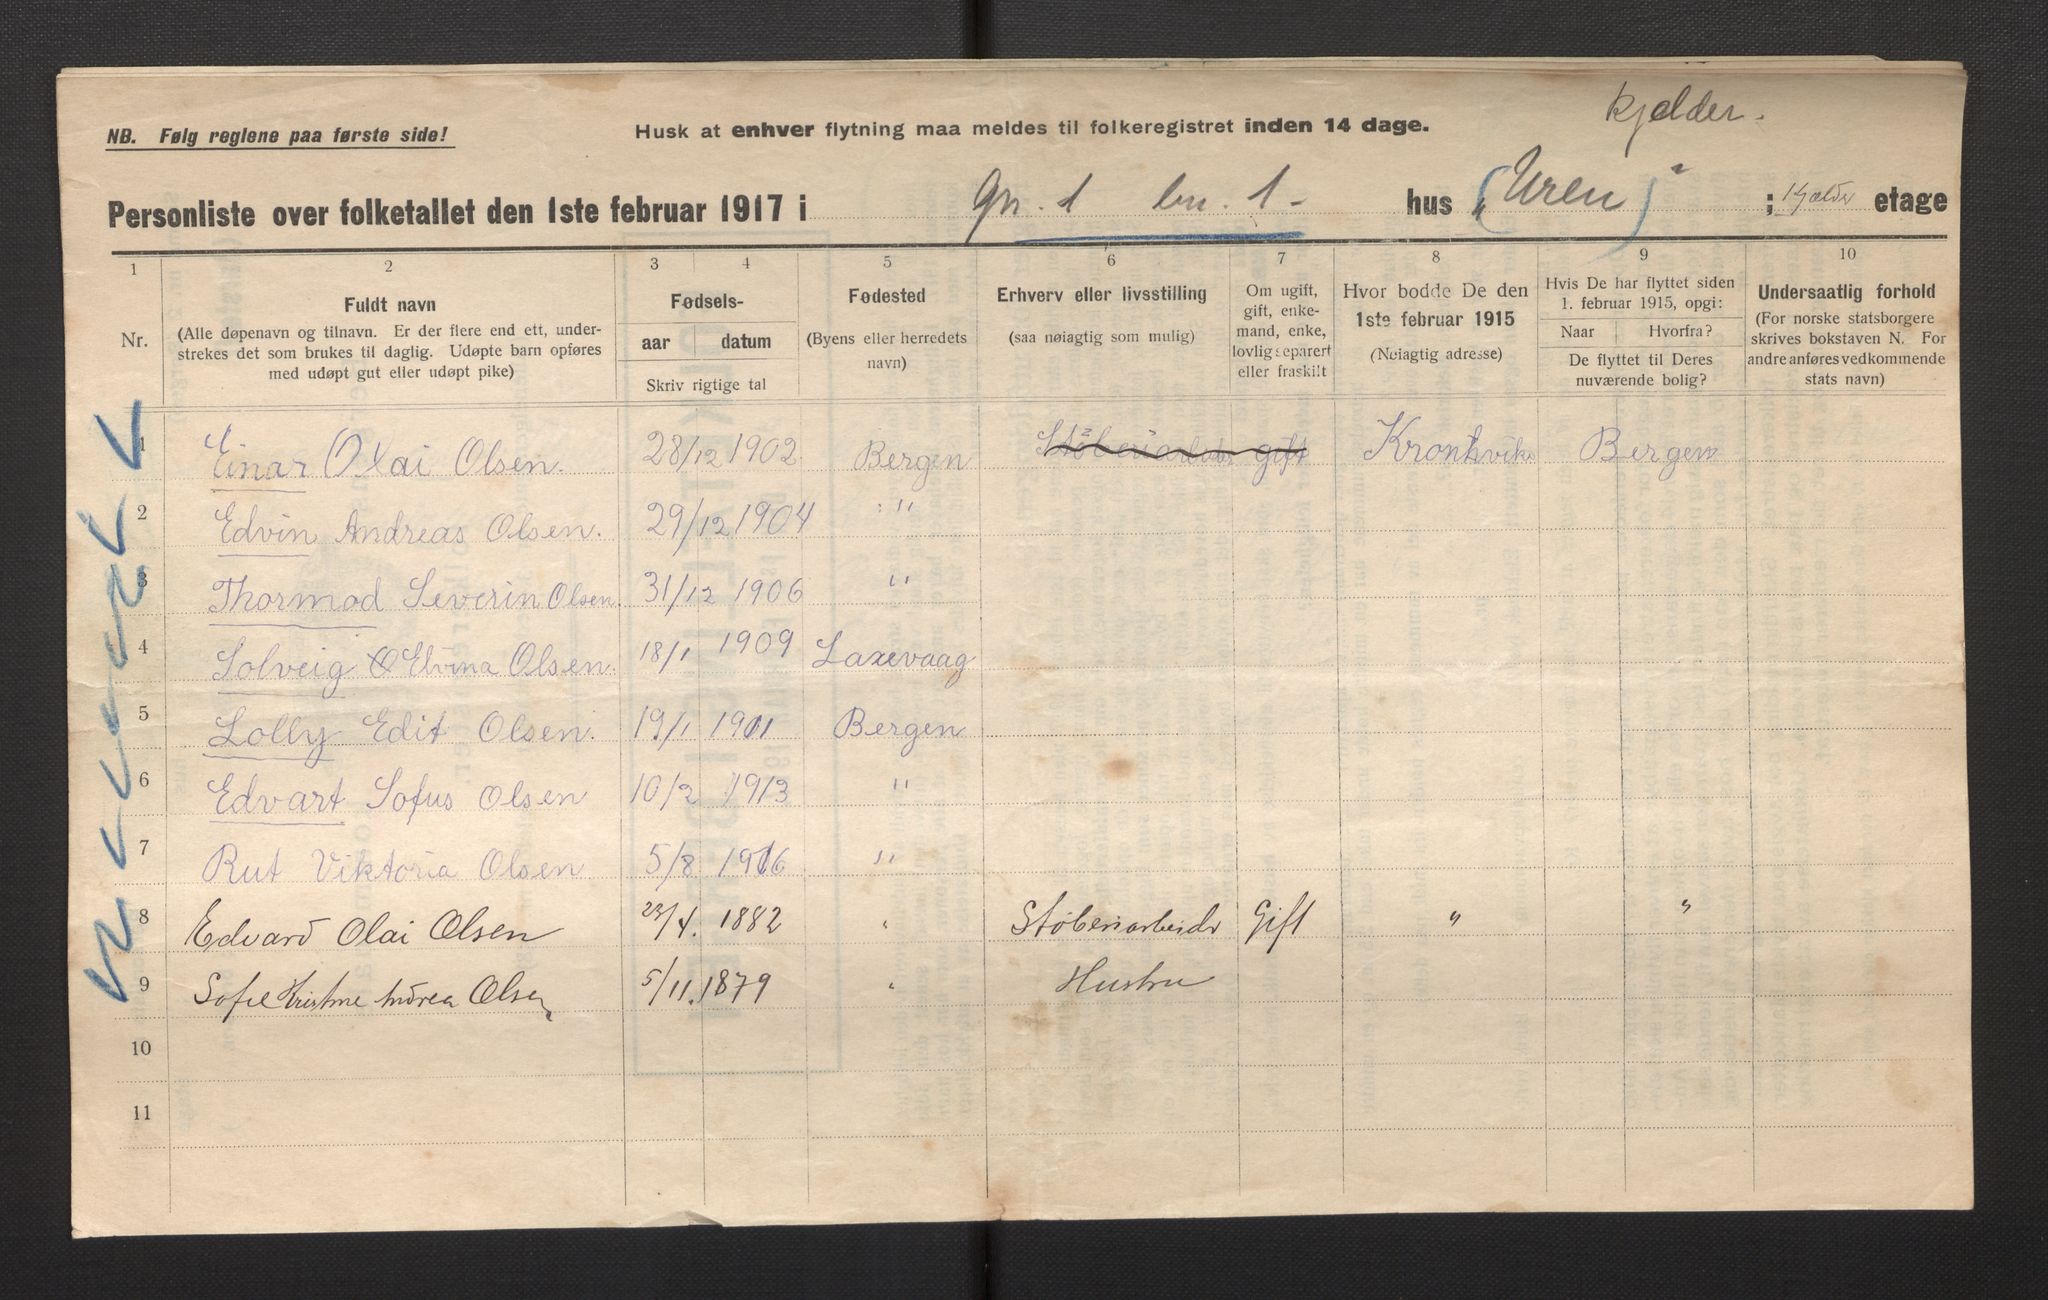 kjelder.
NB. Følg reglene paa første side!
Husk at enhver flytning maa meldes til folkeregistret inden 14 dage.
Personliste over folketallet den 1ste februar 1917 i Gn. 1 bn. 1 - hus („Uren") ; Kjælder etage
1 2 3 4 5 6 7 8 9 10
Nr.
Fuldt navn
(Alle døpenavn og tilnavn. Er der flere end ett, under-
strekes det som brukes til daglig. Udøpte barn opføres
med udøpt gut eller udøpt pike)
Fødsels-
aar datum
Skriv rigtige tal
Fødested
(Byens eller herredets
navn)
Erhverv eller livsstilling
(saa nøiagtig som mulig)
Om ugift,
gift, enke-
mand, enke,
lovlig separert
eller fraskilt
Hvor bodde De den
1ste februar 1915
(Nøiagtig adresse)
Hvis De har flyttet siden
1. februar 1915, opgi:
Naar Hvorfra?
De flyttet til Deres
nuværende bolig?
Undersaatlig forhold
(For norske statsborgere
skrives bokstaven N. For
andre anføres vedkommende
stats navn)
1 Einar Olai Olsen. 28/12 1902 Bergen Støberiarbeider gift Kronhvike Bergen
2 Edvin Andreas Olsen. 29/12 1904 "
3 Thormod Severin Olsen. 31/12 1906 "
4 Solveig Elvina Olsen. 18/1 1909 Laxevaag
5 Lolly Edit Olsen. 19/1 1911 Bergen
6 Edvart Sofus Olsen 10/2 1913 "
7 Rut Viktoria Olsen 5/8 1916 "
8 Edvard Olai Olsen 23/4. 1882 " Støberiarbeider Gift " "
9 Sofie Kristine Andrea Olsen 5/11. 1879 " Hustru
10
11